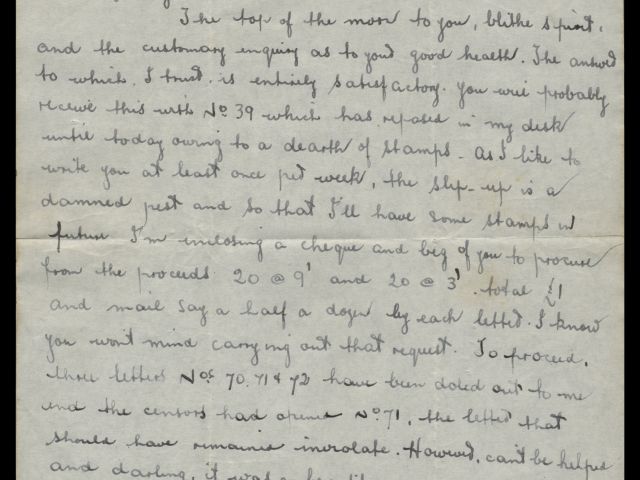 The top of the morn to you, blithe spirit,
and the customary enquiry as to your good health. The answer
to which, I trust, is entirely satisfactory. You will probably
receive this with No 39 which has reposed in my desk
until today owing to a dearth of stamps. As I like to
write you at least once per week, the slip-up is a
damned pest and so that I'll have some stamps in
future I'm enclosing a cheque and beg of you to procure
from the proceeds 20 @ 9' and 20 @ 3'. total £1
and mail say a half a dozen by each letter. I know
you won't mind carrying out that request. To proceed,
three letters Nos 70. 71 & 72 have been doled out to me
and the censors had opened No 71, the letter that
should have remained inviolate. However, can't be helped
and darling, it was a